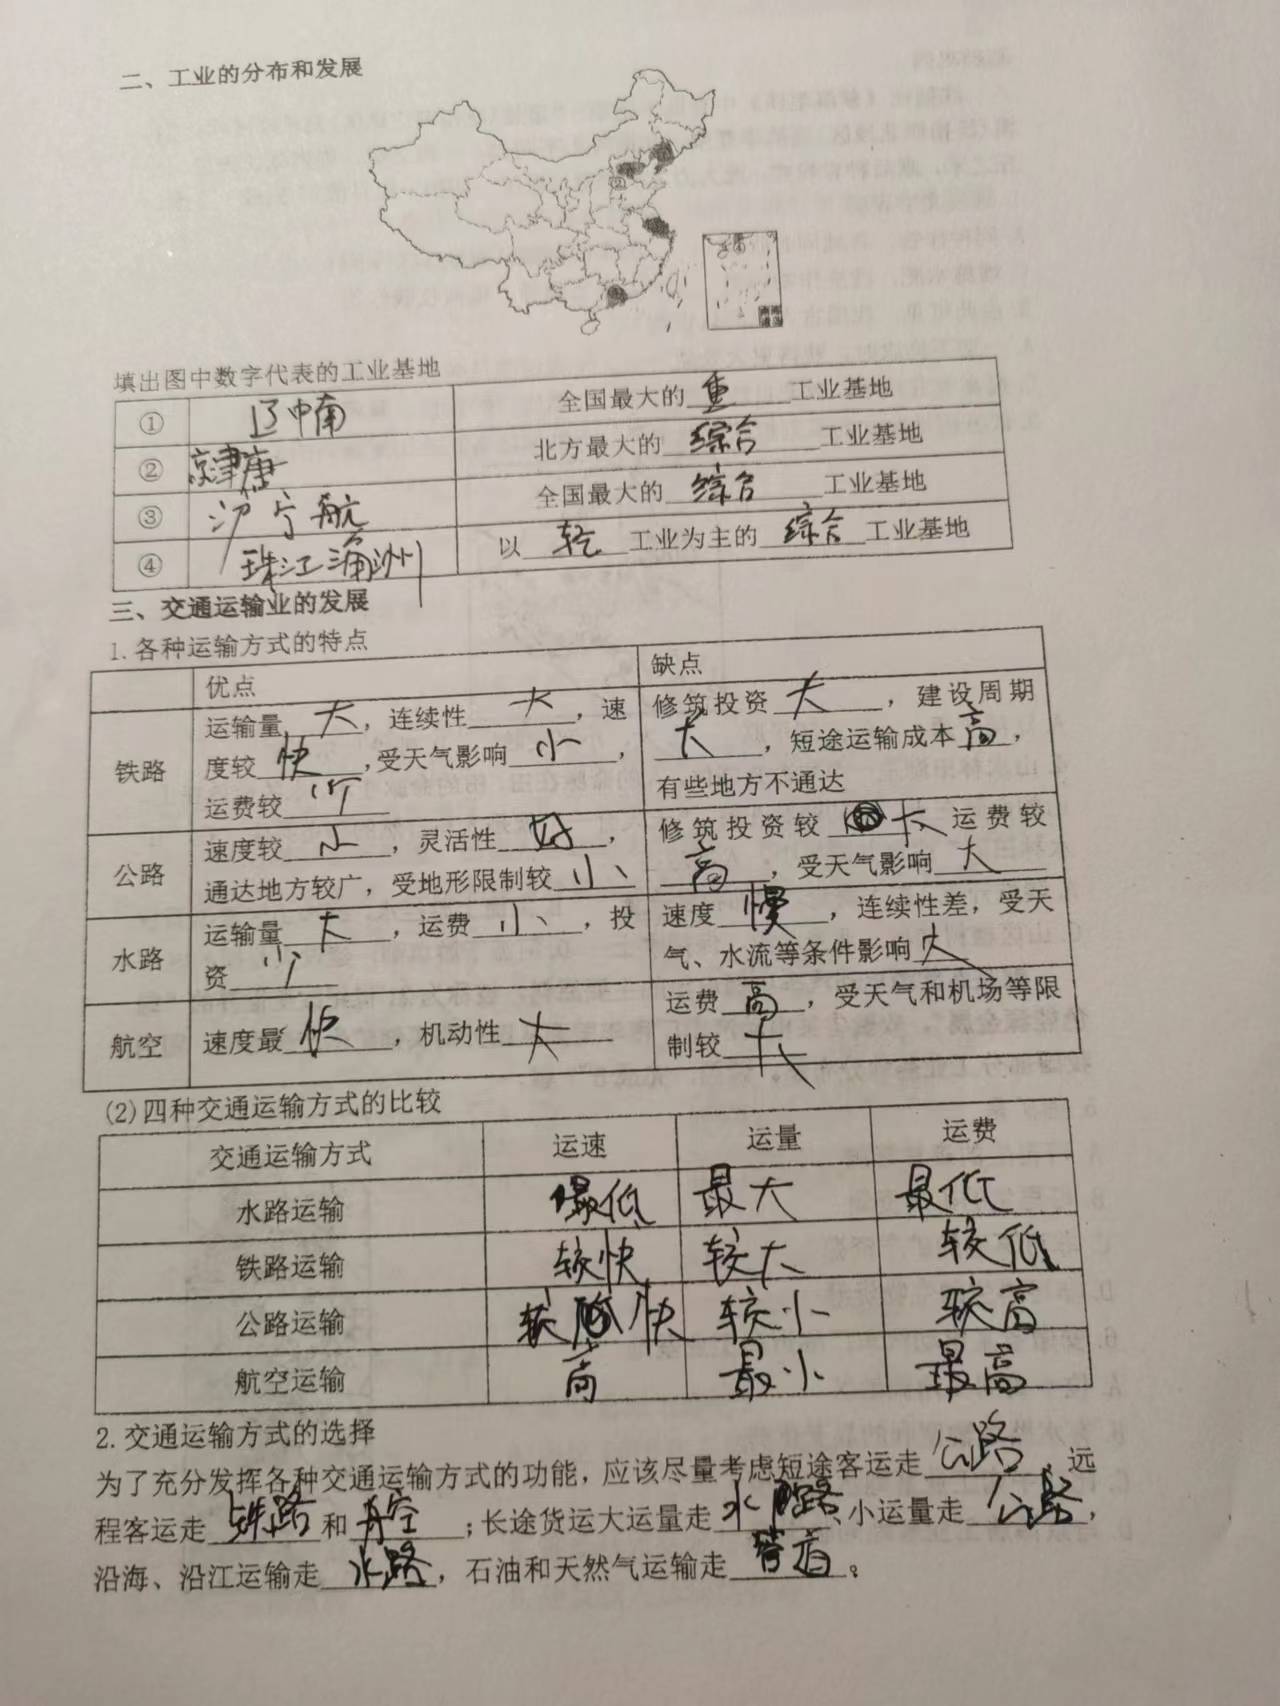 二、工业的分布和发展
填出图中数字代表的工业基地
① 辽中南 全国最大的重工业基地
② 京津唐 北方最大的综合工业基地
③ 沪宁航 全国最大的综合工业基地
④ 珠江三角洲 以轻工业为主的综合工业基地
三、交通运输业的发展
1.各种运输方式的特点
优点 缺点
铁路 运输量大,连续性大,速度较快,受天气影响小,运费较小 修筑投资大,建设周期大,短途运输成本高,有些地方不通达
公路 速度较小,灵活性好,通达地方较广,受地形限制较小 修筑投资较大,运费较高,受天气影响大
水路 运输量大,运费小,投资小 速度慢,连续性差,受天气、水流等条件影响大
航空 速度最快,机动性大 运费高,受天气和机场等限制较大
(2)四种交通运输方式的比较
交通运输方式 运速 运量 运费
水路运输 最低 最大 最低
铁路运输 较快 较大 较低
公路运输 较快 较小 较高
航空运输 高 最小 最高
2.交通运输方式的选择
为了充分发挥各种交通运输方式的功能,应该尽量考虑短途客运走公路,远
程客运走铁路和航空;长途货运大运量走水路、小运量走公路,
沿海、沿江运输走水路,石油和天然气运输走管道。